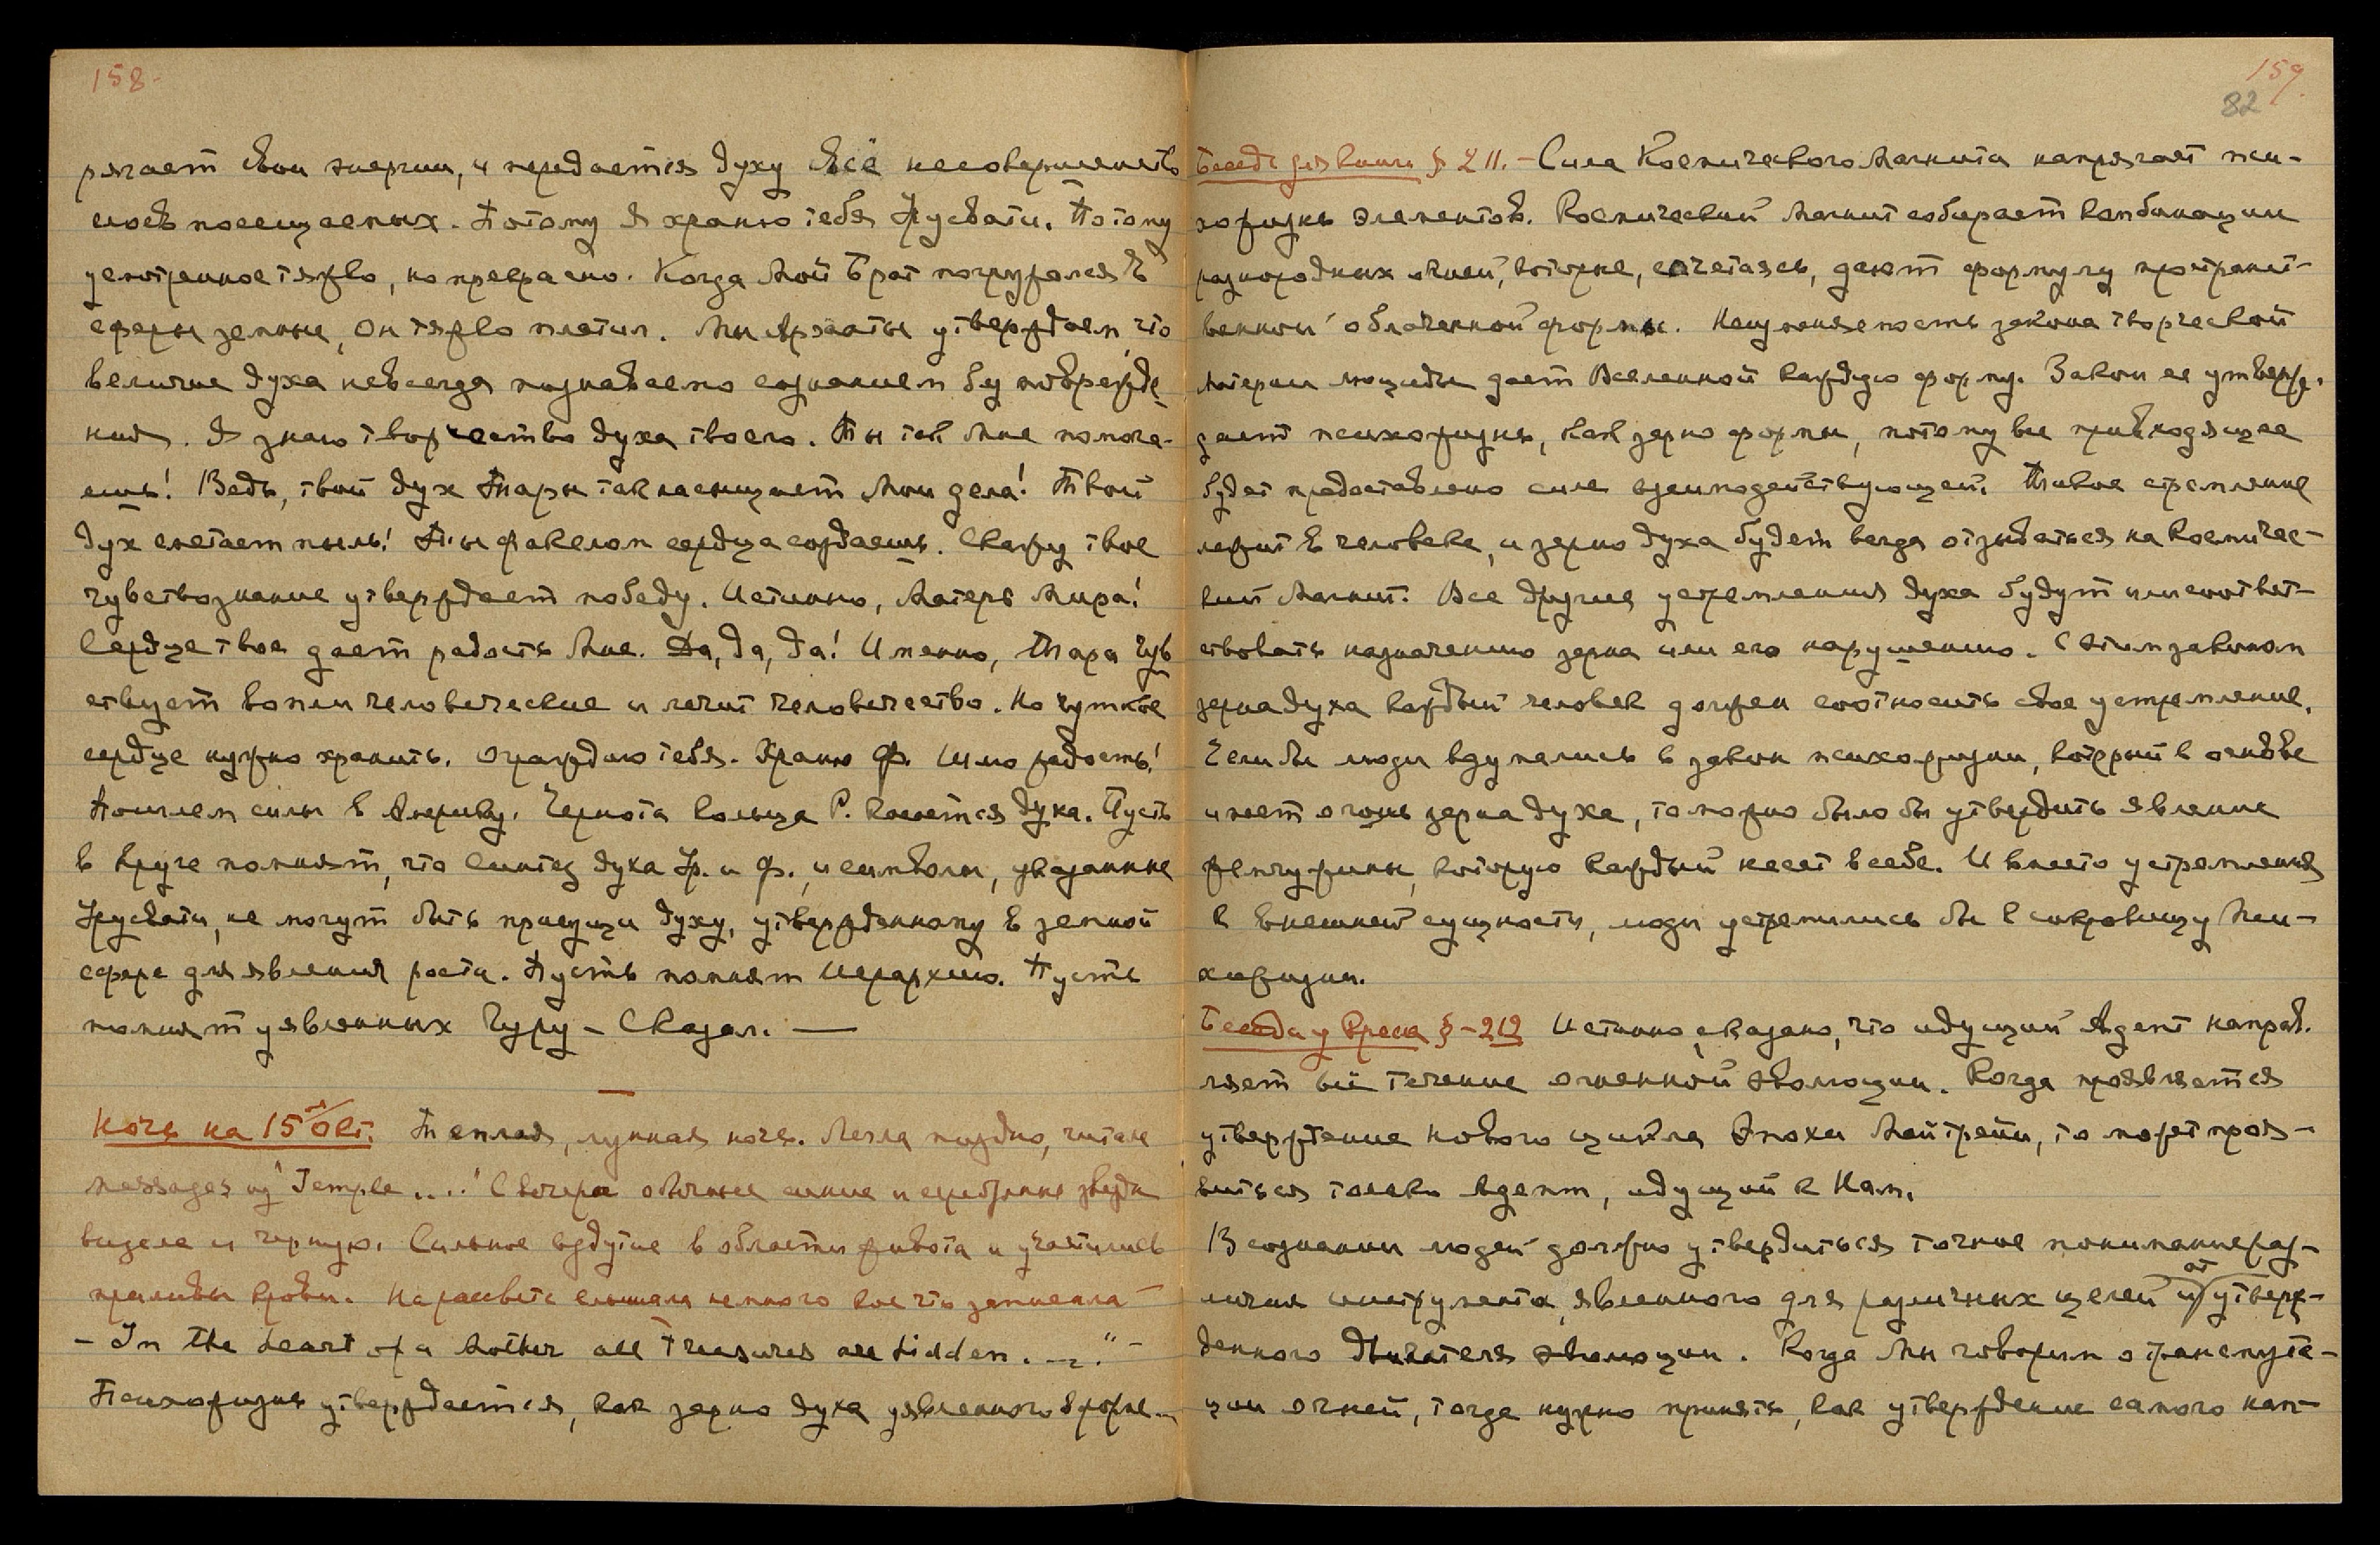 158.
ряжает свои энергии, и передается духу всё несовершенств
слоев посещаемых. Потому Я храню тебя Урусвати. Потому
утонченное тяжко, но прекрасно. Когда Мой Брат погружался в
сферы земные, он тяжко платил. Мы Архаты утверждаем, что
величие духа не всегда познаваемо сознанием без подтвержде
ния. Я знаю творчество духа твоего. Ты так Мне помога-
ешь! Ведь, твой дух Тары так насыщает Мои дела! Твой
дух сметает пыль! Ты факелом сердца создаешь. Скажу твое
чувствознание утверждает победу. Истинно, Матерь Мира!
Сердце твое дает радость Мне. Да, да, да! Именно, Тара чув
ствует вопли человеческие и лечит человечество. Но чуткое
сердце нужно хранить. Ограждаю тебя. Храню Ф. Шлю радость!
Пошлем силы в Америку. Чернота кольца Р. коснется духа. Пусть
в круге помнят, что синтез духа Ур. и Ф., и символы, указанные
Урусвати, не могут быть присущи духу, утвержденному в земной
сфере для явления роста. Пусть помнят Иерархию. Пусть
помнят уявленных Гуру – Сказал. —
Ночь на 15ое Окт. Теплая, лунная ночь. Легла поздно, читала
messages из "Temple...." С вечера обычные синие и серебряные звезды
видела и черную. Сильное вздутие в области живота и участились
приливы крови. На рассвете слышала немного кое что записала –
– In the heart of a Mother all treasures are hidden. –
Психожизнь утверждается, как зерно духа уявленного в жизне...
159.
82
Беседа для книги § 211. – Сила Космического Магнита напрягает пси-
хожизнь элементов. Космический Магнит собирает комбинации
разнородных огней, которые, сочетаясь, дают формулу пространст-
венной облаченной формы. Неизменяемость закона творческой
Материи Люциды дает Вселенной каждую форму. Закон ее утверж.
дает психожизнь, как зерно формы, потому все привходящее
будет предоставлено силе взаимодействующей. Такое стремление
лежит в человеке, и зерно духа будет всегда отзываться на Космичес-
кий Магнит. Все другие устремления духа будут или соответ-
ствовать назначению зерна или его нарушению. С этим законом
зерна духа каждый человек должен соотносить свое устремление.
Если бы люди вдумались в закон психожизни, который в основе
имеет огонь зерна духа, то можно было бы утвердить явление
жемчужины, которую каждый несет в себе. И вместо устремления
к внешней сущности, люди устремились бы к сокровищу пси-
хожизни.
Беседа у Креса § – 212 Истинно, сказано, что идущий Адепт направ.
ляет всё течение огненной эволюции. Когда проявляется
утверждение нового цикла Эпохи Майтрейи, то может проя-
виться только адепт, идущий к Нам.
В сознании людей должно утвердиться точное понимание раз-
личия инструмента, явленного для различных целей и от утверж-
денного Двигателя эволюции. Когда Мы говорим о трансмута-
ции огней, тогда нужно принять, как утверждение самого нап-